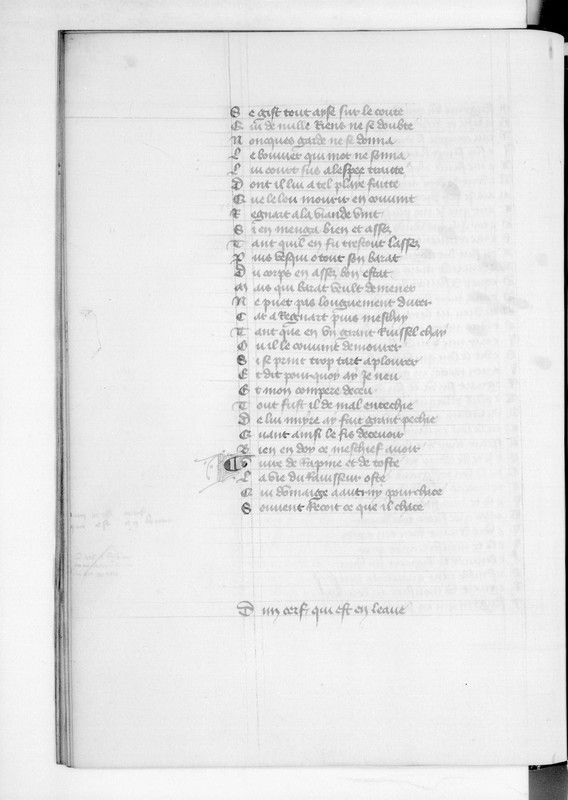 S e gist tout ayse sur le coute
Q ui de nulle Riens ne se doubte
N oncques garde ne se donna
L e bouvier qui mot ne sonna
L ui court sus a lespee traitte
D ont il lui a tel playe faitte
Q ue le lou mourir en convint
R egnart a la viande vint
S i en menga bien et assez
T ant quil en fu trestout lassez
P uis vesqui o tout son barat
D u corps en assez bon estat
M ais qui barat veult demener
N e puet pas longuement durer
C ar a Regnart puis meschuy
T ant que en un grant Ruissel chay
O u il le convint demourer
S i se print trop tart a plourer
E t dit pour quoy ay Je neu
E t mon compere deceu
T out fust il de mal entechie
D e lui nuyre ay fait grant pechie
Q uant ainsi le fis decevoir
B ien en doy ce meschief avoir
T uite de Rapine et de toste
L a vie du Ravisseur oste
Q ui dommaige a autruy pourchace
S ouvent Recoit ce que il chace
D un cerf qui est en leaue